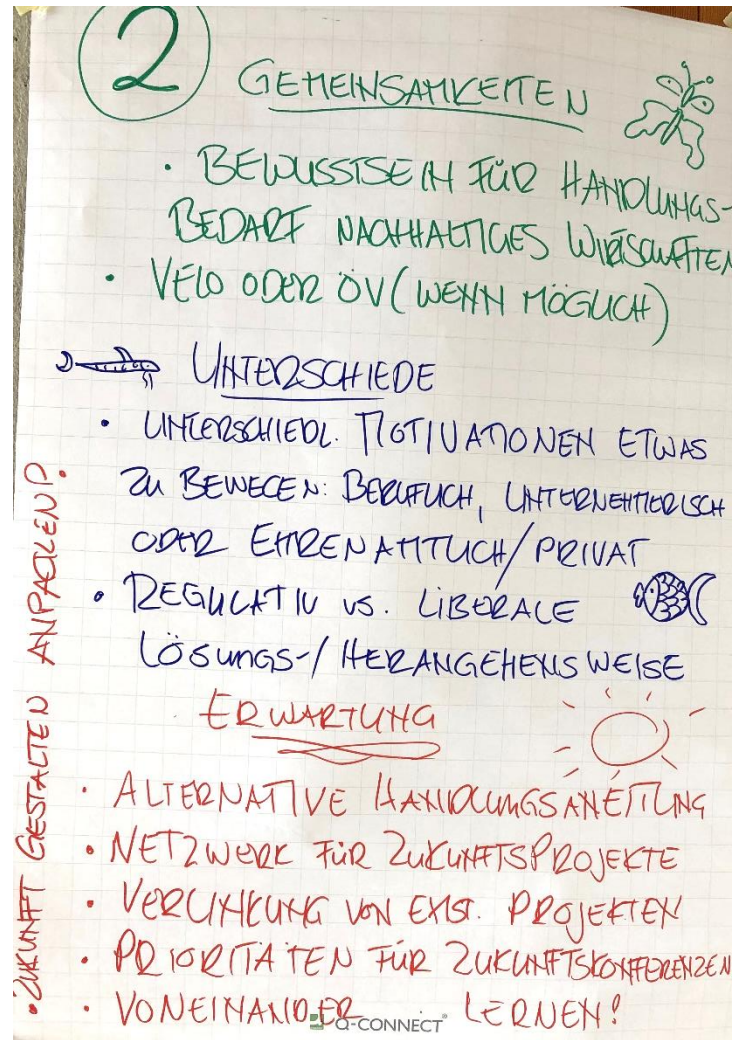 2
GEMEINSAMKEITEN
• BEWUSSTSEIN FÜR HANDLUNGS-
BEDARF NACHHALTIGES WIRTSCHAFTEN
• VELO ODER ÖV (WENN MÖGLICH)
UNTERSCHIEDE
• UNTERSCHIEDL. MOTIVATIONEN ETWAS
ZU BEWEGEN: BERUFLICH, UNTERNEHMERISCH
ODER EHRENAMTLICH/PRIVAT
• REGULATIV VS. LIBERALE
LÖSUNGS-/HERANGEHENSWEISE
ERWARTUNG
• ALTERNATIVE HANDLUNGSANEITUNG
• NETZWERK FÜR ZUKUNFTSPROJEKTE
• VERLINKUNG VON EXIST. PROJEKTEN
• PRIORITÄTEN FÜR ZUKUNFTSKONFERENZEN
• VONEINANDER LERNEN!
Q-CONNECT
• ZUKUNFT GESTALTEN ANPACKEN?